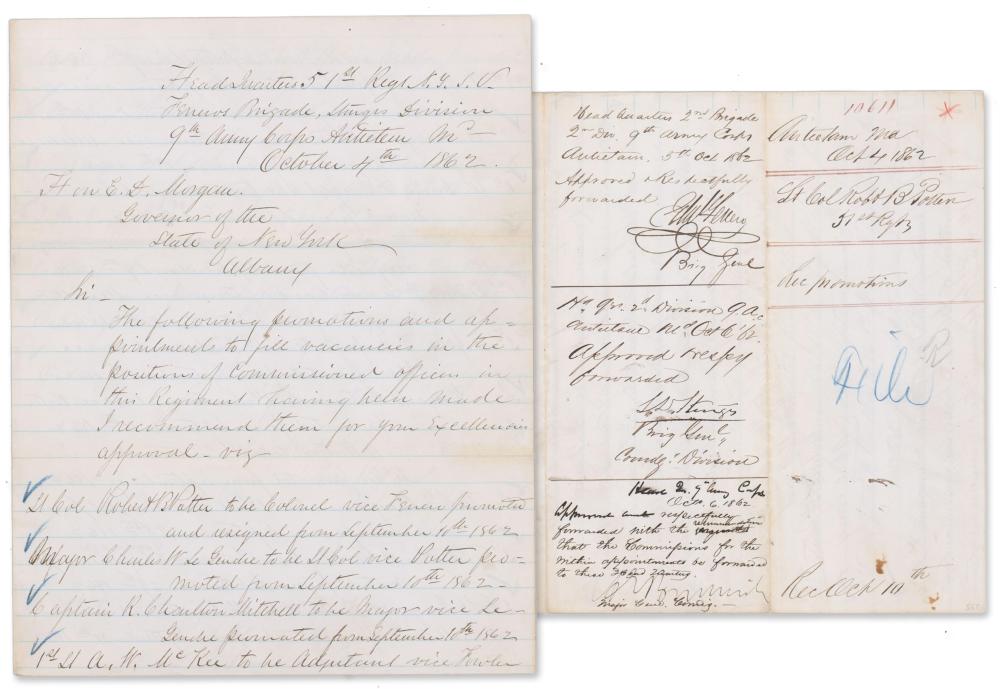 Head Quarters 51st Regt N.Y.S.V.
Ferreros Brigade, Sturgis Division
9th Army Corps Antietem Md
October 4th 1862.
Hon E. D. Morgan.
Governor of the
State of New York
Albany
Sir -
The following promotions and ap=
pointments to fill vacancies in the
positions of Commissioned officers in
this Regiment having been made
I recommend them for your Excellencies
approval - viz
Lt Col Robert B Potter to be Colonel vice Ferrero promoted
and resigned from September 10th 1862
Major Charles W Le Gendre to be Lt Col vice Potter pro=
moted from September 10th 1862 -
Captain R. Charlton Mitchell to be Major vice Le -
Gendre promoted from September 10th 1862
1st Lt A. W. McKee to be Adjutant vice Fowler
Head Quarters 2nd Brigade
2d Div. 9th Army Corps
Antietam. 5th Oct 1862
Approved & Respectfully
forwarded
Brig Genl
Hd Qrs. 2d Division 9. A.C
Antietam Md Oct 6 '62
Approved & respy
forwarded
S. D. Sturgis
Brig Genl,
Comdg. Division
Head Qrs. 9" Army Corps
Oct. 6. 1862
Approved and respectfully
forwarded with the recommendation
that the Commissions for the
within appointments be forwarded
to these Hd Qrs
Major Genl. Comdg. -
10611
Antietam Md
Oct 4 1862
Lt Col Robt B Potter
51st Regt
Rec promotions
File
R
Rec Oct 10th